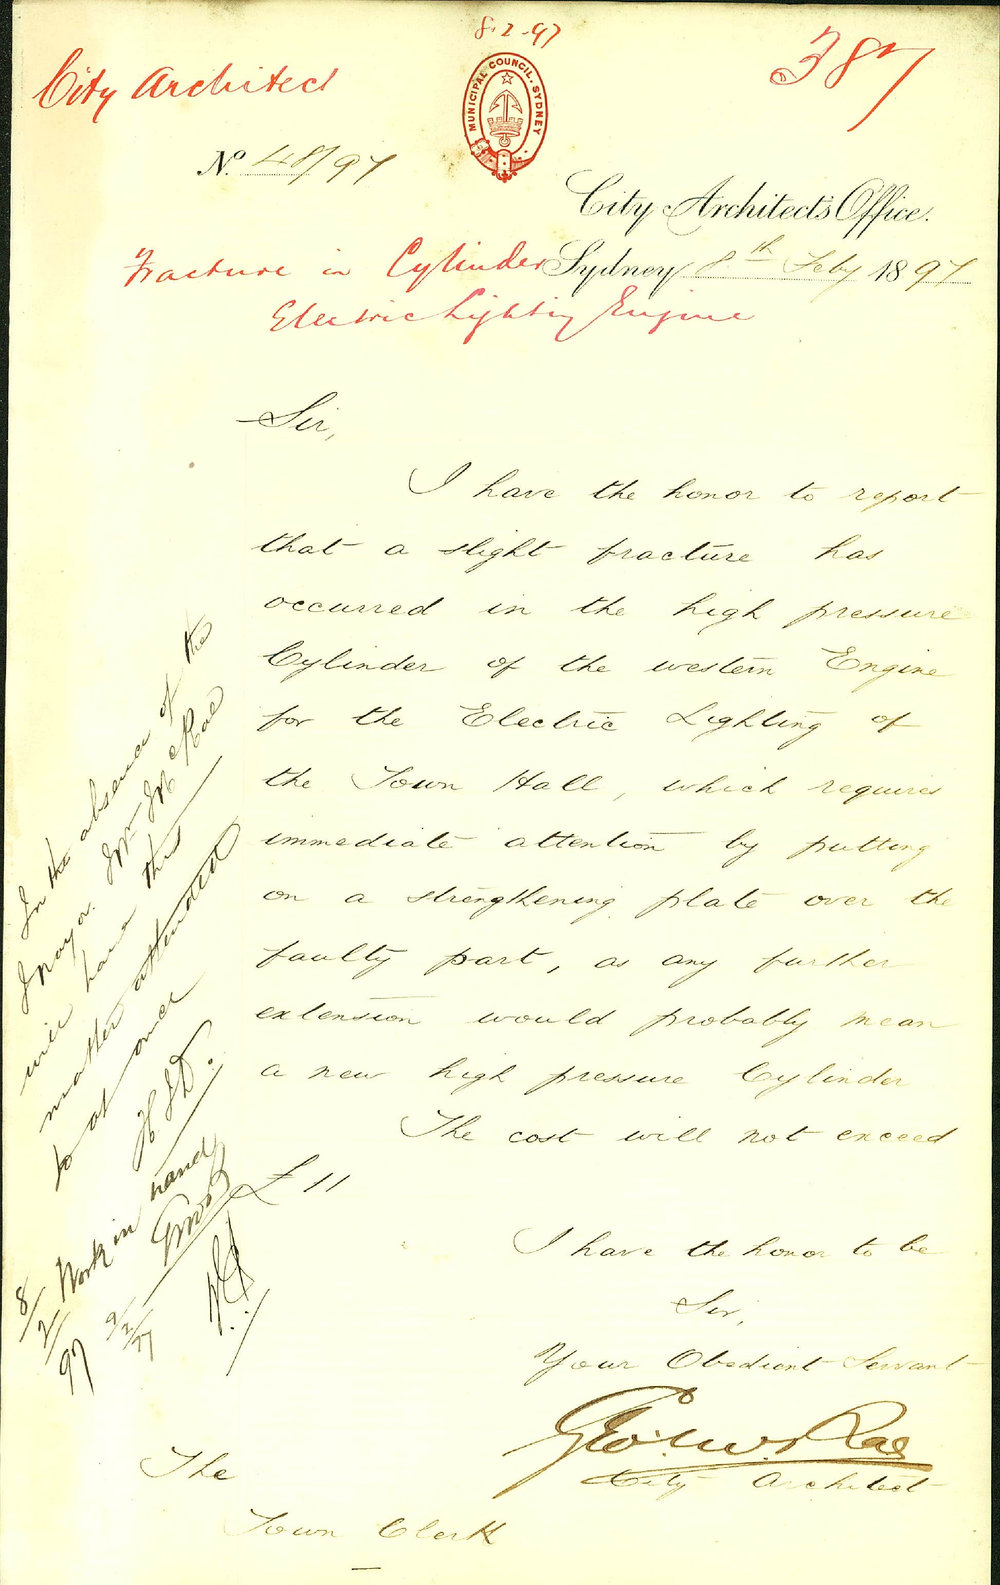 8.2.97
City Architect
387
MUNICIPAL COUNCIL. SYDNEY
No. 48/97
City Architects Office.
Sydney 8th Feby 1897
Fracture in Cylinder
Electric Lighting Engine
Sir,
I have the honor to report
that a slight fracture has
occurred in the high pressure
Cylinder of the western Engine
for the Electric Lighting of
the Town Hall, which requires
immediate attention by putting
on a strengthening plate over the
faulty part, as any further
extension would probably mean
a new high pressure Cylinder
The cost will not exceed
£11
I have the honor to be
Sir,
Your Obedient Servant
Geo. McRae
City Architect
The
Town Clerk
In the absence of the
Mayor. Mr McRae
will have this
matter attended
to at once
8/2/97
Work in hand
9/2/97